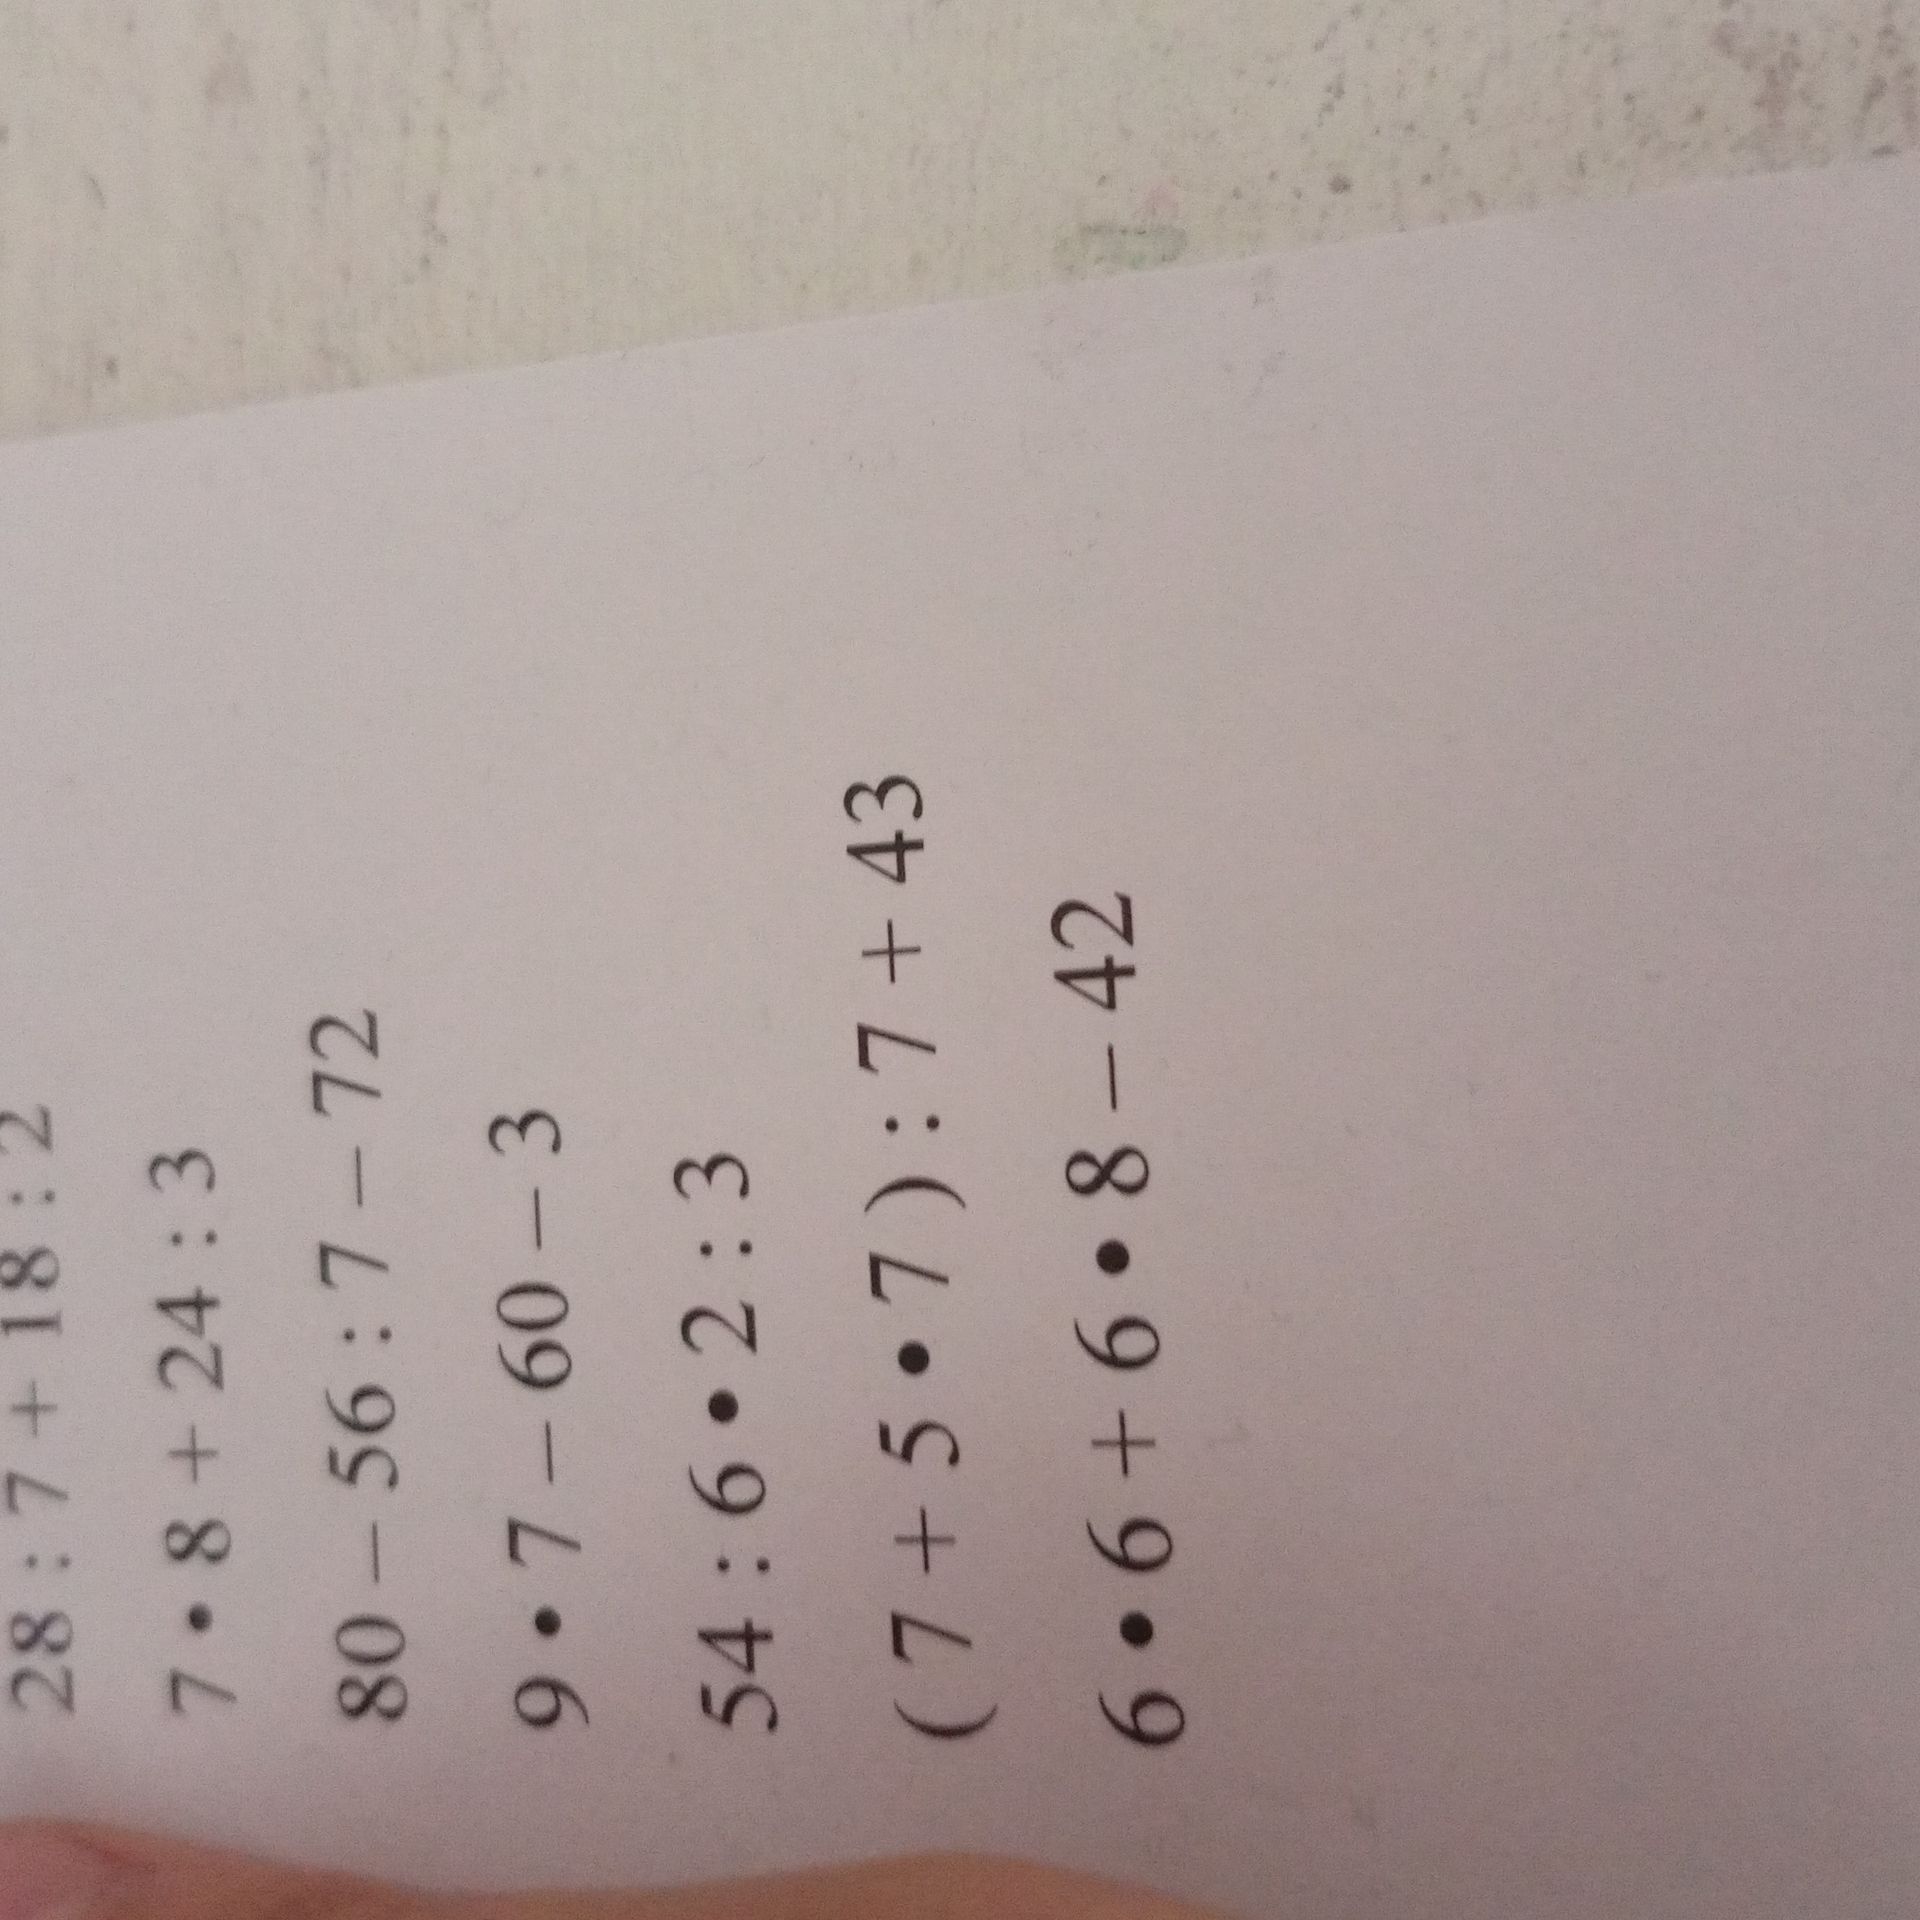 28 : 7 + 18 : 2
7 • 8 + 24 : 3
80 – 56 : 7 – 72
9 • 7 – 60 – 3
54 : 6 • 2 : 3
( 7 + 5 • 7 ) : 7 + 43
6 • 6 + 6 • 8 – 42